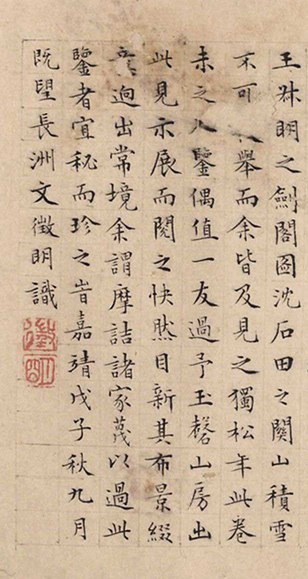 王叔明之劍閣圖沈石田之關山積雪
不可 舉而余皆及見之獨松年此卷
未之 鑒偶值一友過予玉磬山房出
此見示展而閱之快然目新其布景綴
意迥出常境余謂摩詰諸家蔑以過此
鑒者宜秘而珍之旹嘉靖戊子秋九月
既望長洲文徵明識
徵明